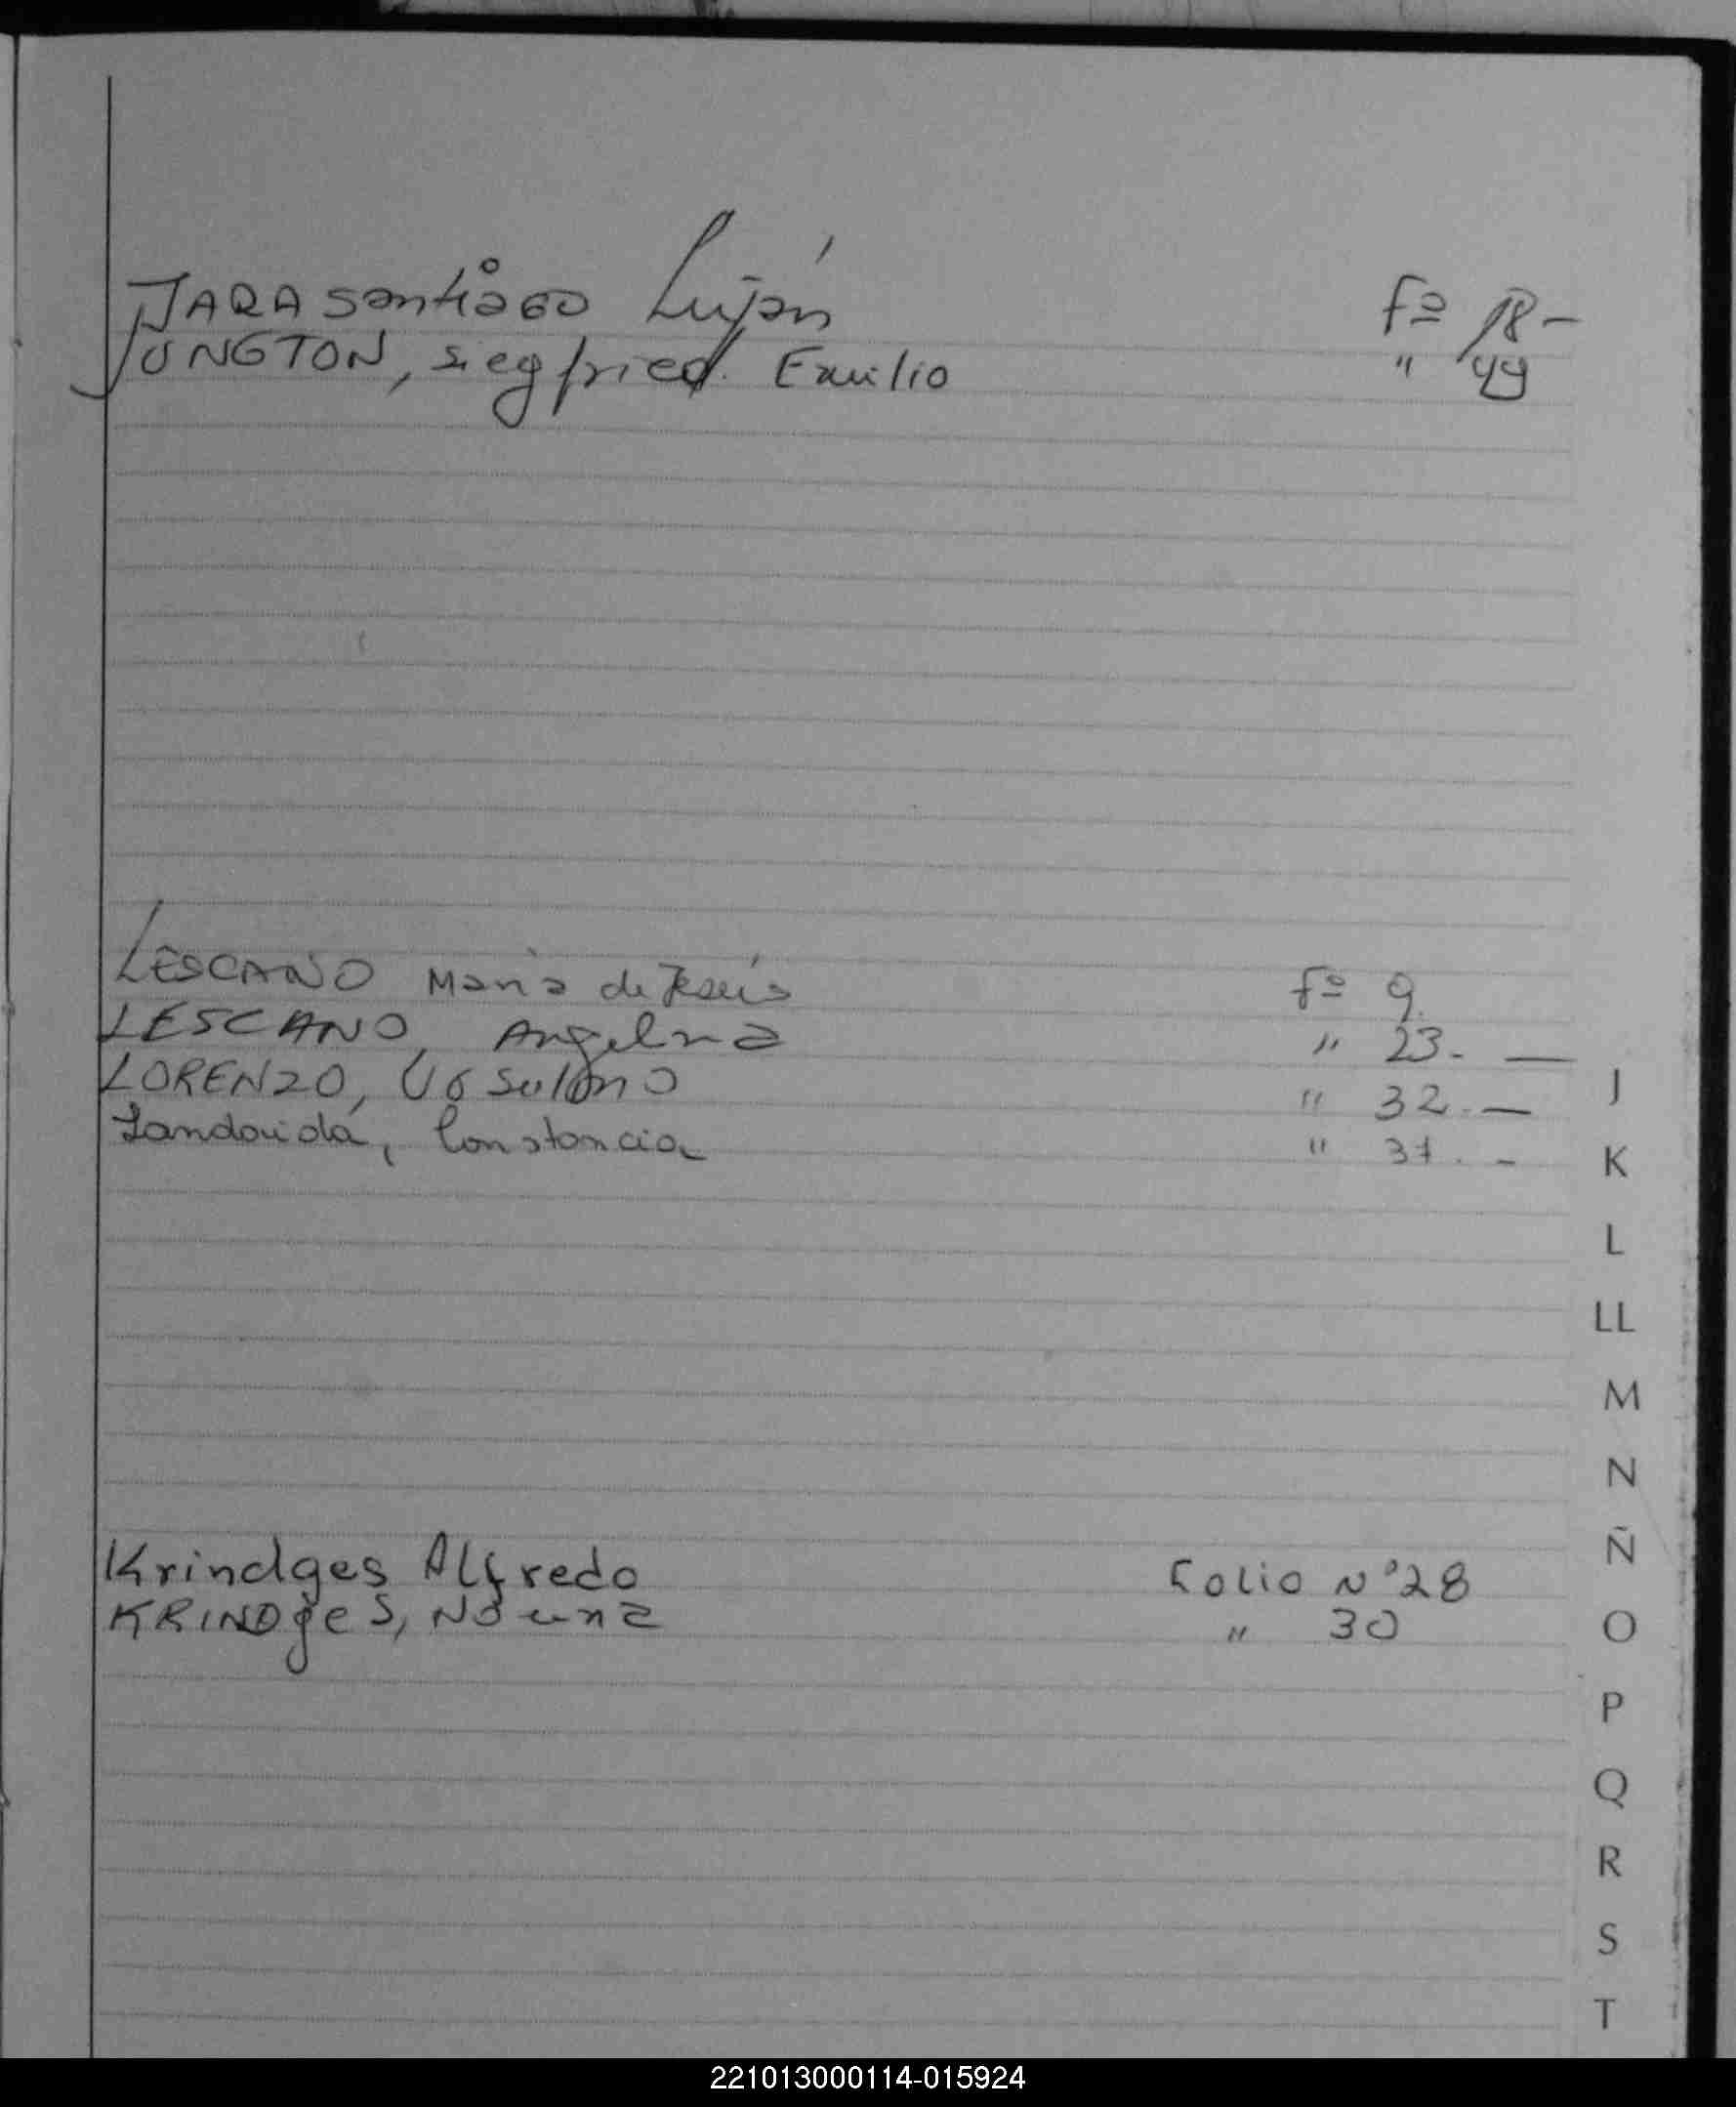 JARA Santiago Luján fº 18-
JUNGTON, Siegfried Emilio " 49
LESCANO María de Jesús fº 9.
LESCANO, Angelina " 23. —
LORENZO, " 32. —
Landouida, Constancia " 31. -
Krindges Alfredo Folio Nº 28
KRINDgES, " 30
J
K
L
LL
M
N
Ñ
O
P
Q
R
S
T
221013000114-015924